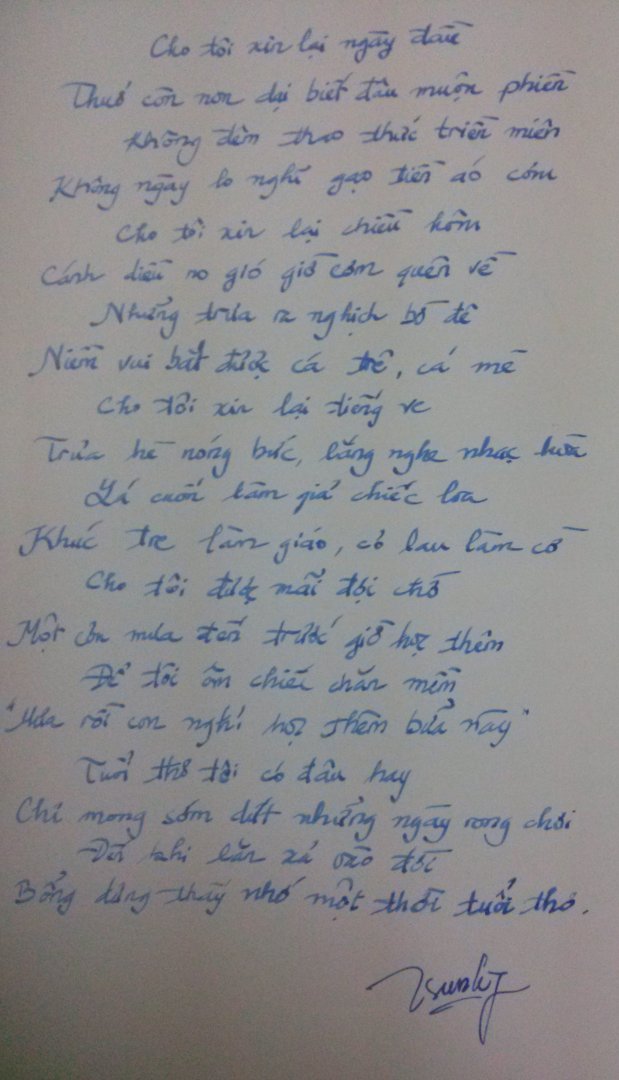 Cho tôi xin lại ngày đầu
Thuở còn non dại biết đâu muộn phiền
Không đêm thao thức triền miên
Không ngày lo nghĩ gạo tiền áo cơm
Cho tôi xin lại chiều hôm
Cánh diều no gió giờ cơm quên về
Những trưa ra nghịch bờ đê
Niềm vui bắt được cá trê, cá mè
Cho tôi xin lại tiếng ve
Trưa hè nóng bức, lắng nghe nhạc hòa
Lá cuốn làm giả chiếc loa
Khúc tre làm giáo, cỏ lau làm cờ
Cho tôi được mãi đợi chờ
Một cơn mưa đến trước giờ học thêm
Để tôi ôm chiếc chăn mềm
"Mưa rồi con nghỉ học thêm bữa này"
Tuổi thơ tôi có đâu hay
Chỉ mong sớm dứt những ngày rong chơi
Đến khi lăn xả vào đời
Bỗng dưng thấy nhớ một thời tuổi thơ.